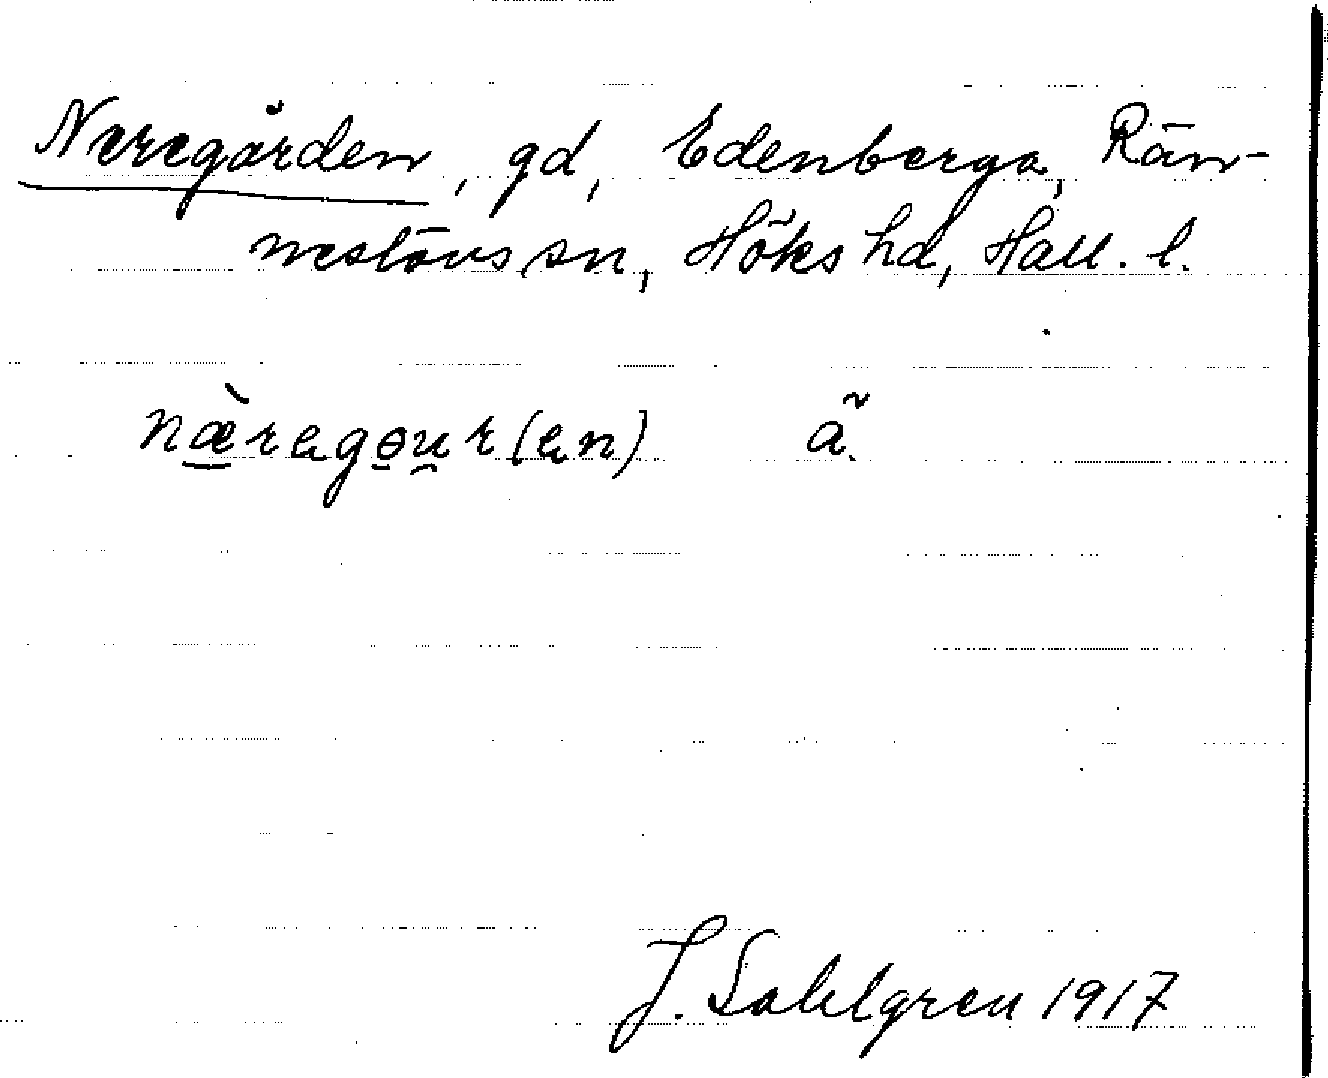 Neregården, gd, Edenberga, Rän-
neslövs sn, Höks hd, Hall. l.
næ̀regɵur(en) ã.
J. Sahlgren 1917